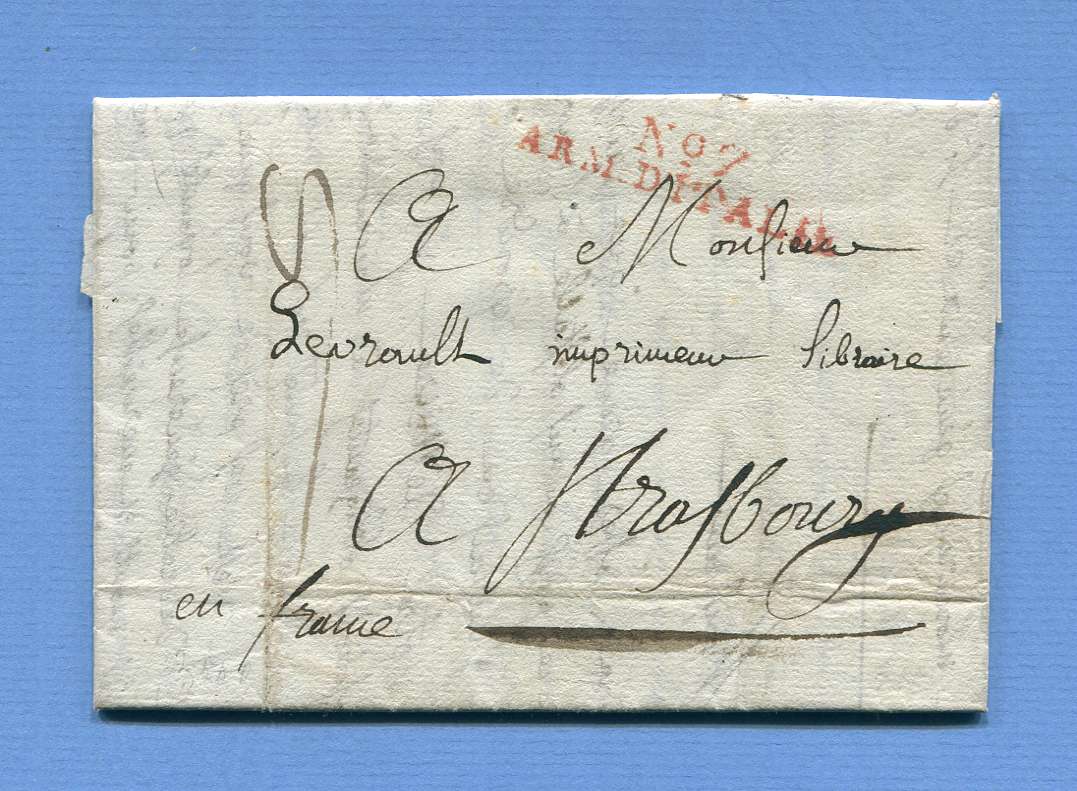 No 7
ARM. D'ITALIE
A Monsieur
Levrault imprimeur libraire
A Strasbourg
en france